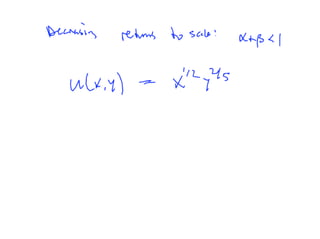 Decreasing returns to scale: α+β<1
u(x,y) = x^{1/2} y^{2/5}